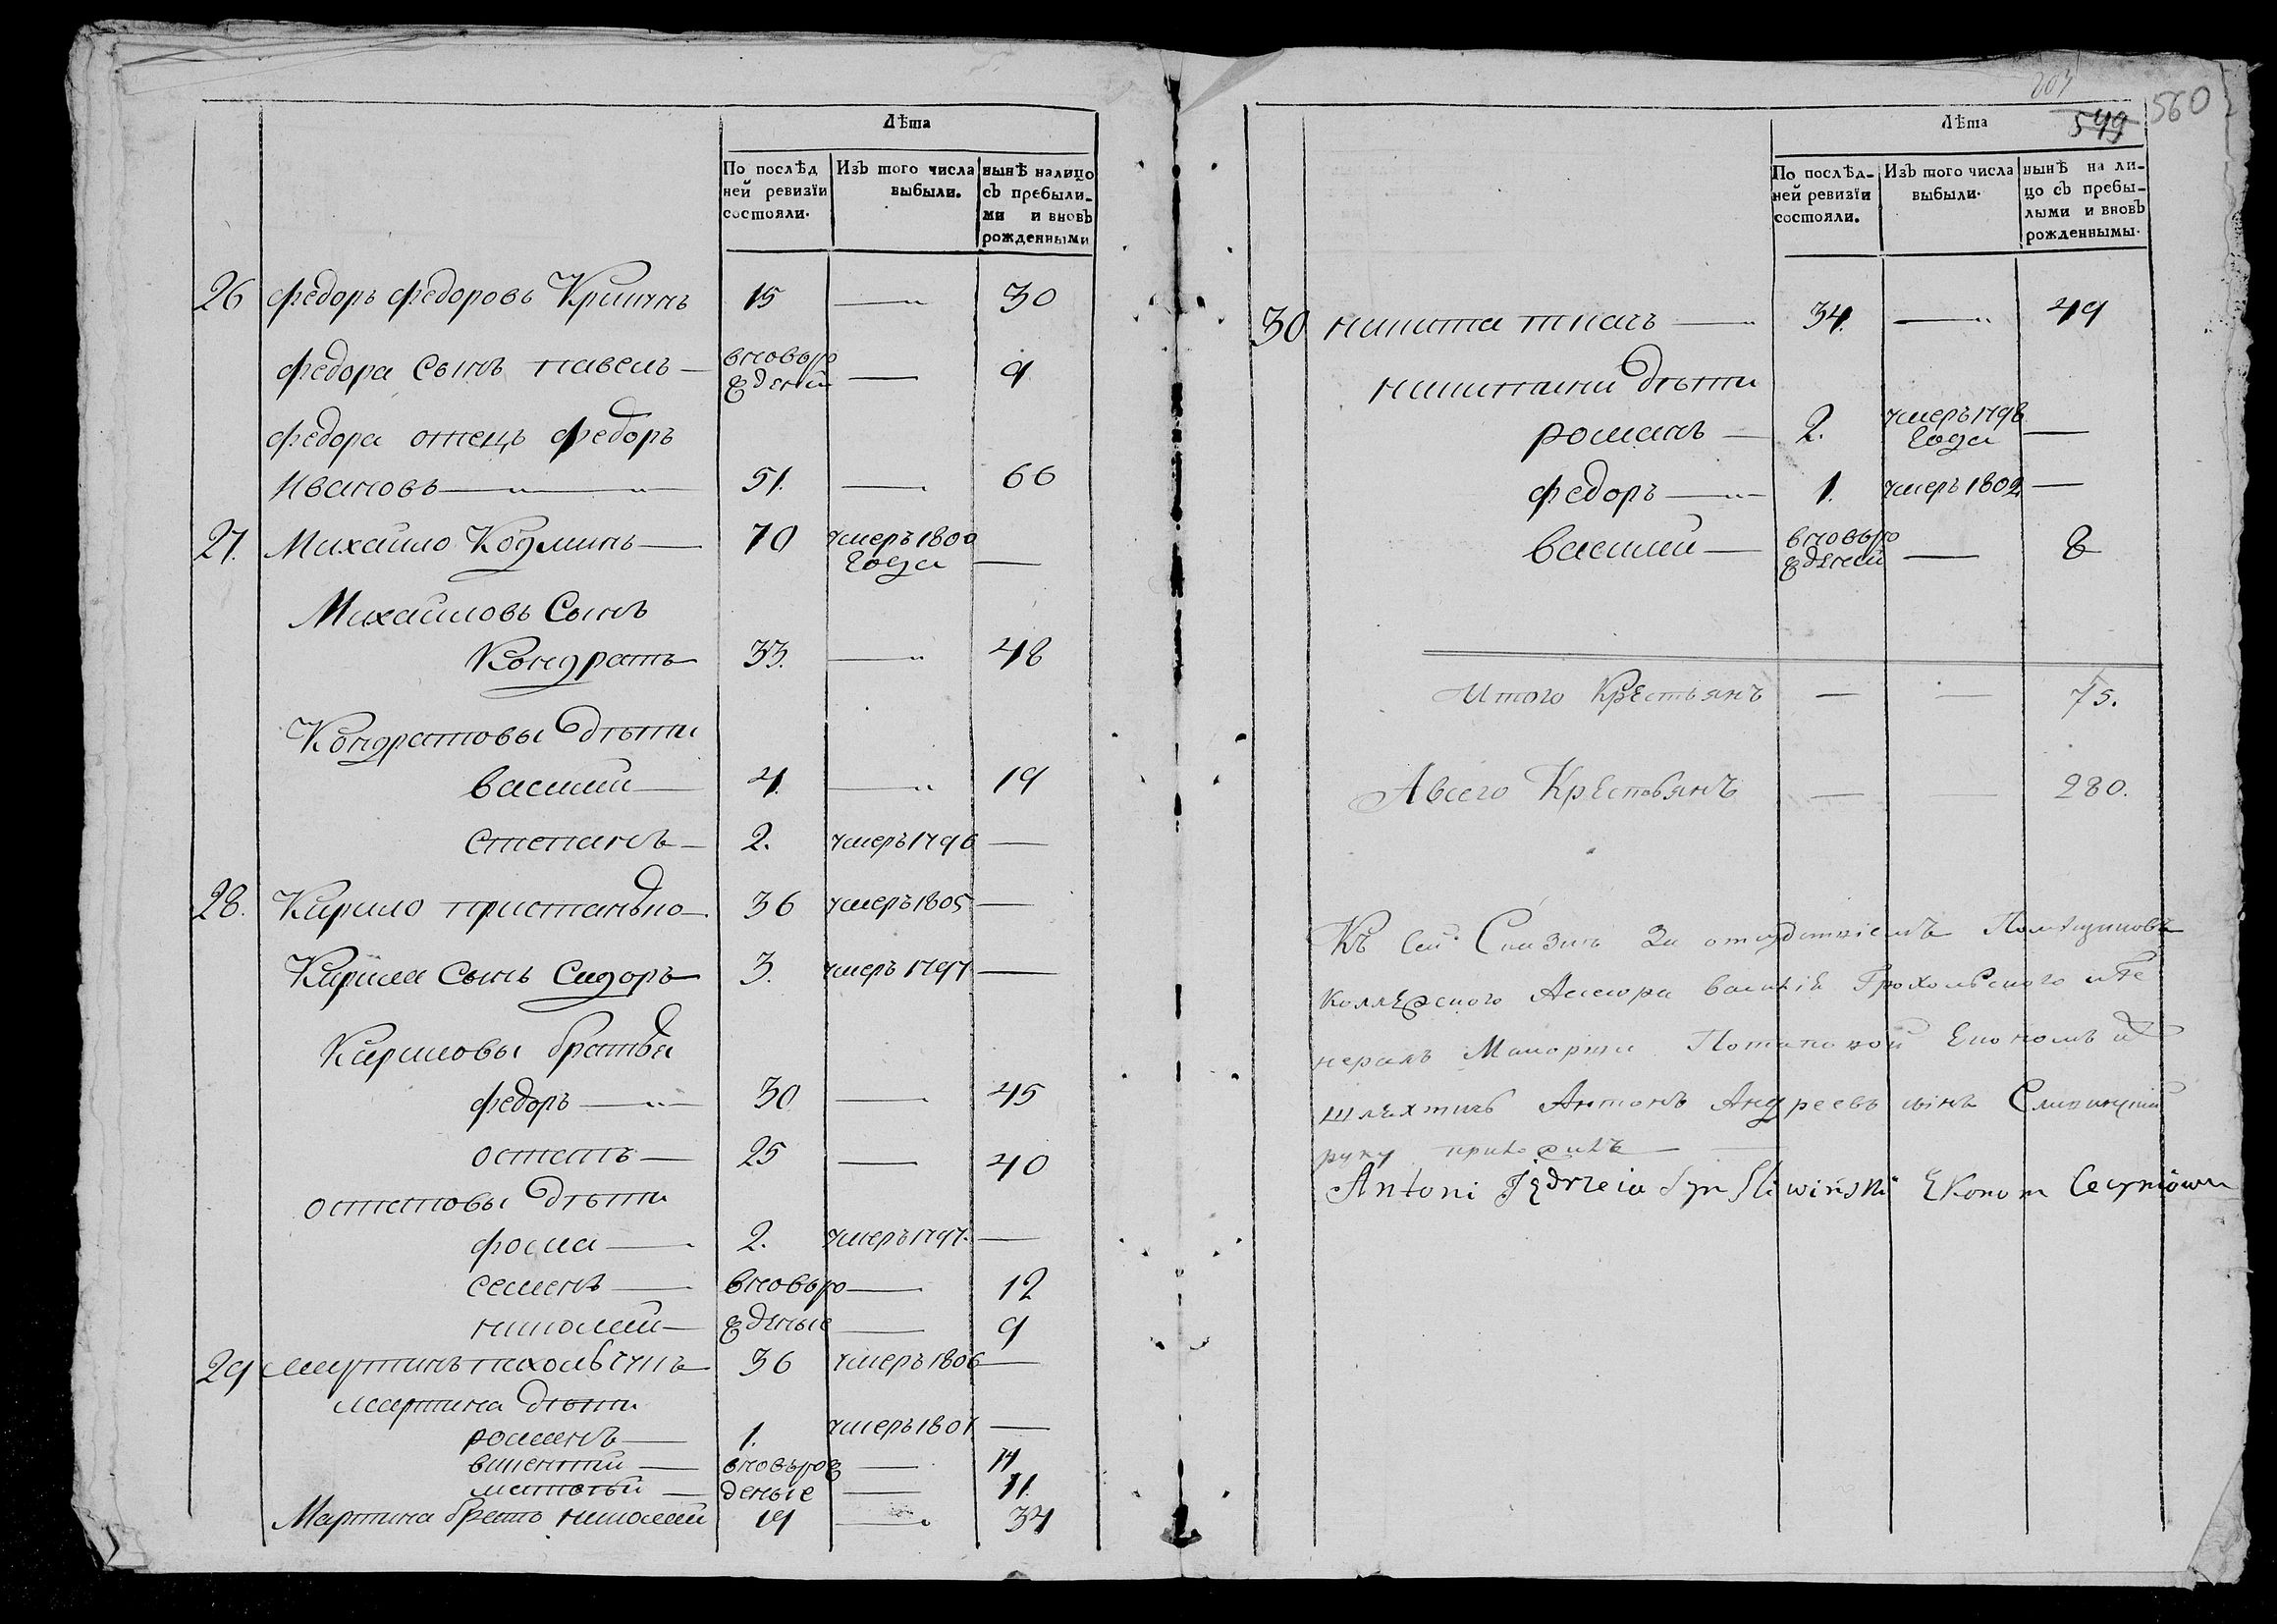 Лѣта
По послѣд ней ревизїи состояли. Изъ того числа выбыли. нынѣ налицо съ пребыли- ми и вновь рожденными
26 федоръ федоровъ 15 — 30
федора сынъ павелъ — вновьро жденый — 9
федора отецъ федоръ
Ивановъ — 51. — 66
27. Михайло Козминъ — 70 умеръ 1800 года —
Михайловъ Сынъ
Кондратъ 33. — 48
Кондратовы дѣти
василий — 4 — 19
степанъ — 2. умеръ 1796 —
28. Кирило 36 умеръ 1805 —
Кирила Сынъ Сидоръ 3. умеръ 1797 —
Кириловы братья
федоръ — 30 — 45
остапъ — 25 — 40
остаповы дѣти
фома — 2. умеръ 1797. —
семенъ — вновьро — 12
николай — жденые — 9
29 мартинъ 36 умеръ 1806 —
мартина дѣти
романъ — 1. умеръ 1801 —
викентий — вновьрож — 14
матвѣй — деные — 11.
Мартина братъ николай 19 — 34
203
549 560
Лѣта
По послѣд- ней ревизїи состояли. Изъ того числа выбыли. нынѣ на ли- цо съ пребы- лыми и вновь рожденнымы.
30 никита ткачъ — 34. — 49
никитини дѣти
романъ — 2. умеръ 1798 года —
федоръ — 1. умеръ 1802 —
василий — вновьро жденый — 8
Итого Крестьянъ — — 75.
А всего Крестьянъ — — 280.
Къ сей Сказки За отсудствіемъ Помѣщиковъ
коллежского Ассесора Грохольского и Ге
нералъ Маиорши Економъ
шляхтичъ Антонъ Андреевъ сынъ
руку приложилъ —
Antoni Jędrzeia Syn Sliwiński Ekonom